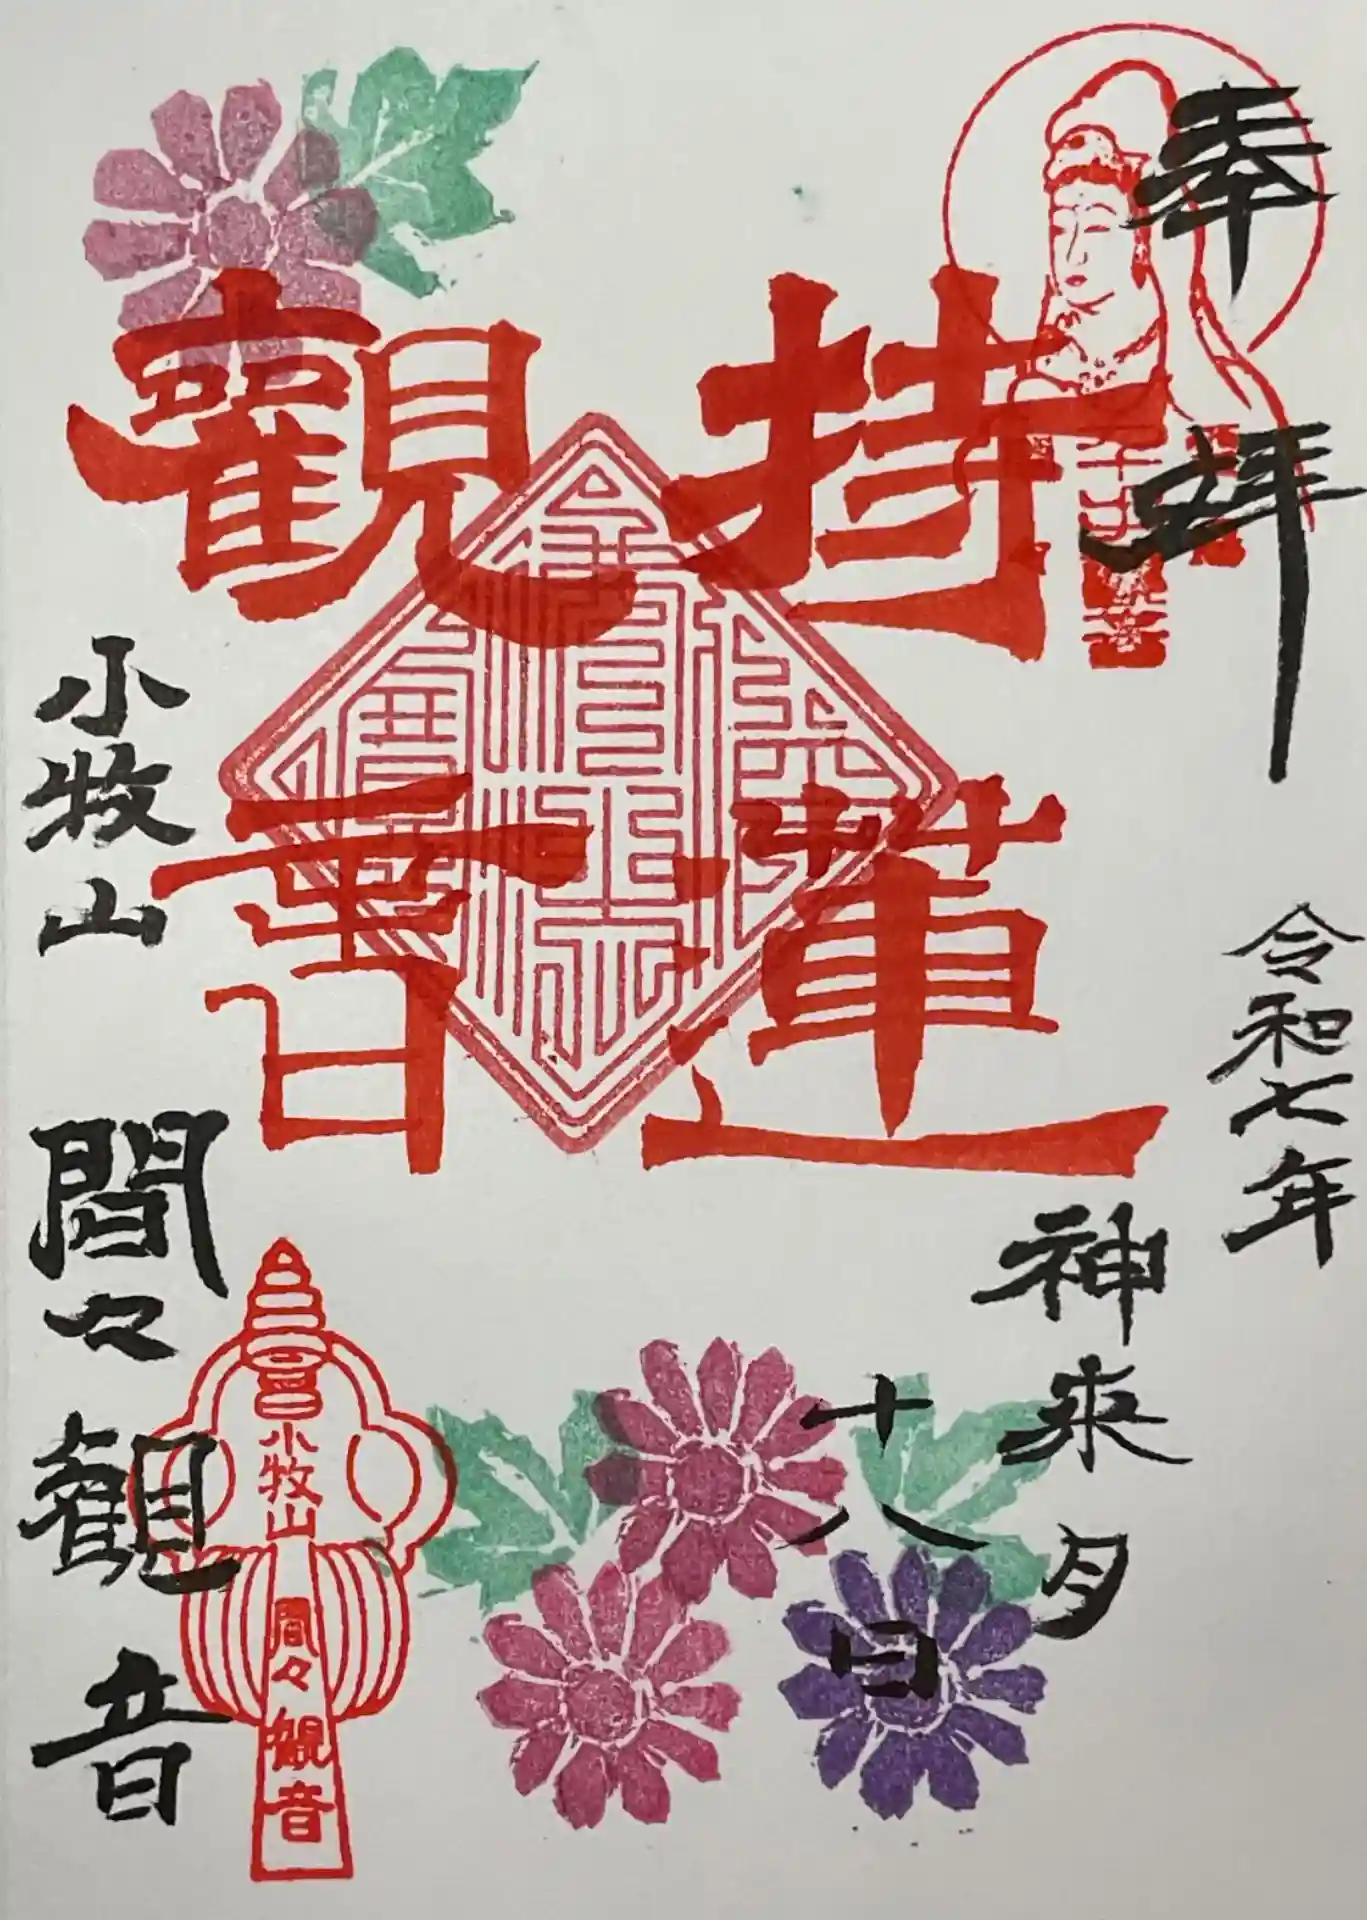 奉拝
令和七年
神来月
十八日
持蓮
觀音
小牧山 間々観音
小牧山
間々観音